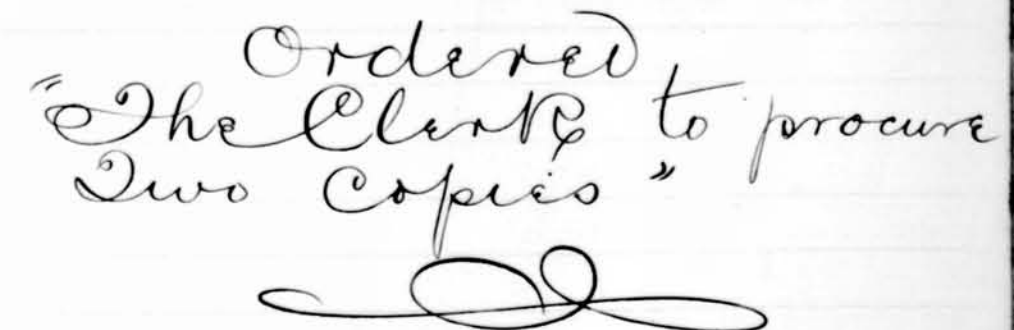 Ordered
"The Clerk to procure
Two Copies"